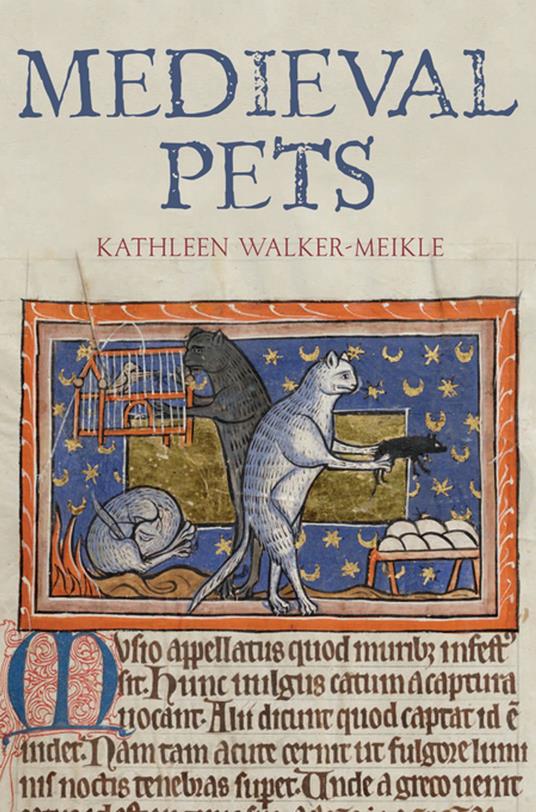 MEDIEVAL
PETS
KATHLEEN WALKER-MEIKLE
Musio appellatus quod muribꝫ infestꝰ
sit. Hunc uulgus catum a captura
uocant. Alii dicunt quod captat id ē
uidet. Nam tam acute cernit ut fulgore lumi
nis noctis tenebras superet. Unde a greco uenit